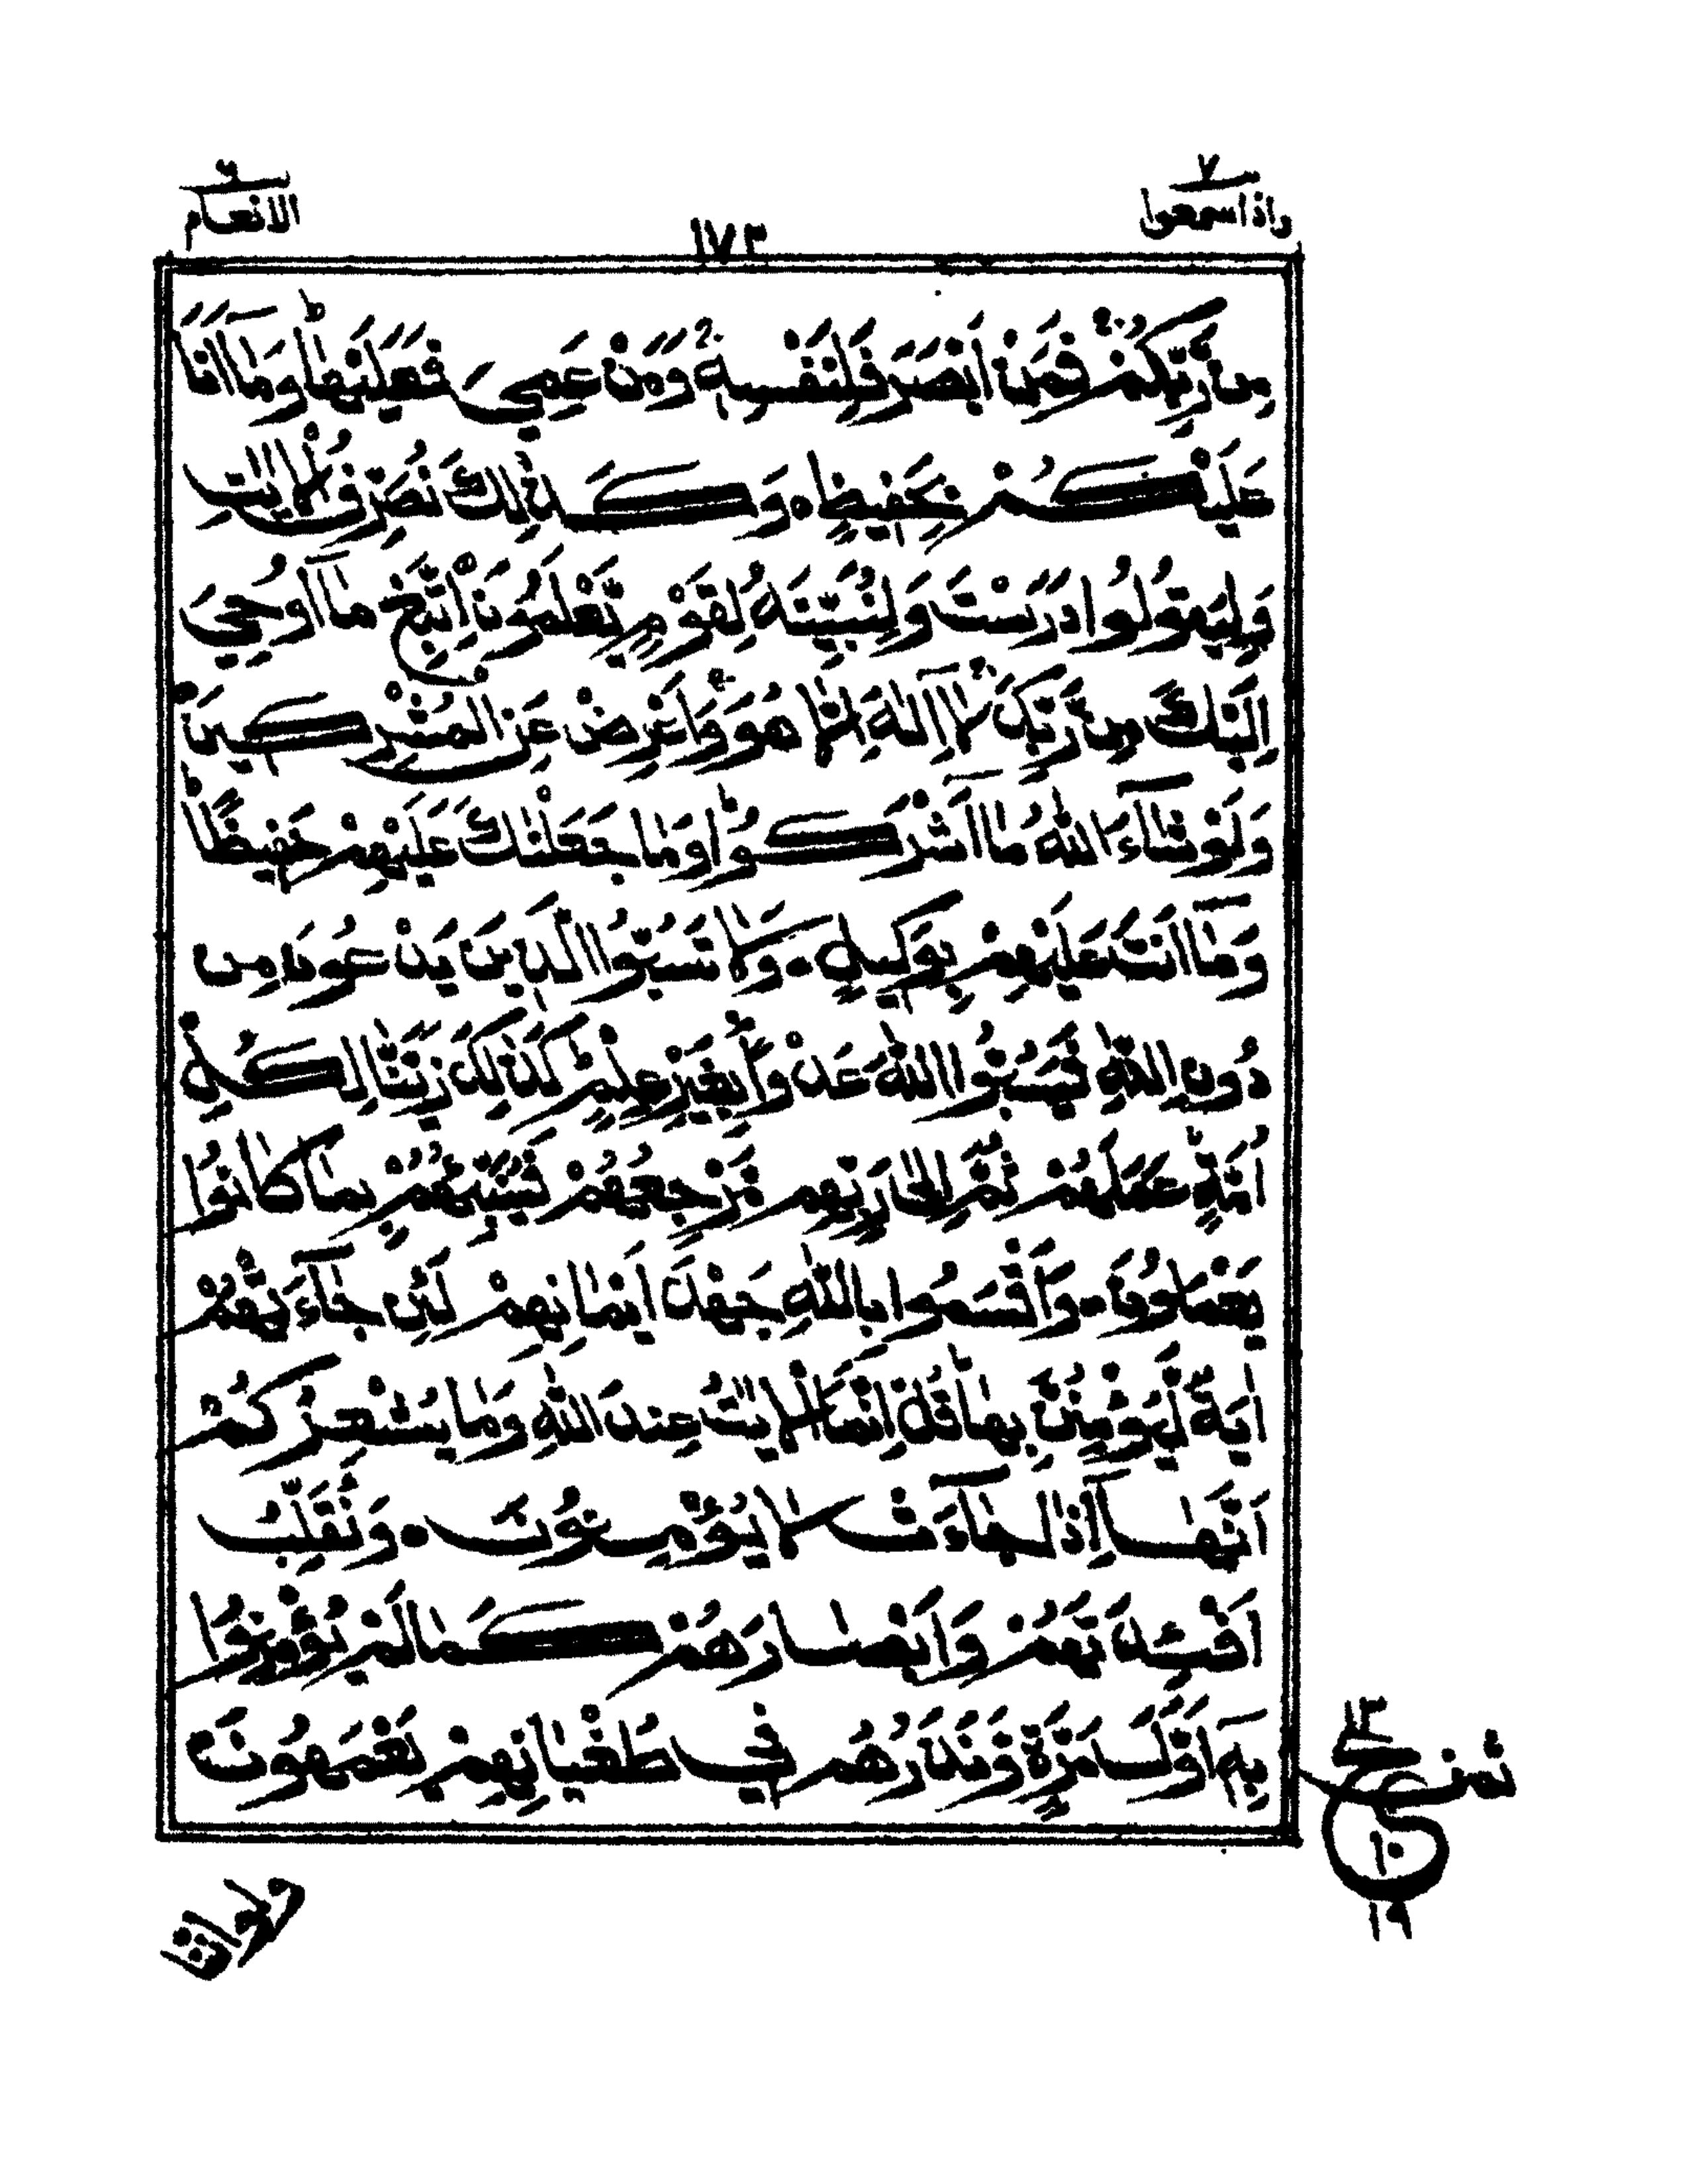 واذا سمعوا ٧
١٧٣
الانعام ٦
مِنْ رَّبِّكُمْ فَمَنْ اَبْصَرَ فَلِنَفْسِهٖ وَمَنْ عَمِيَ فَعَلَيْهَا ؕ وَمَاۤ اَنَا
عَلَيْكُمْ بِحَفِيْظٍ ○ وَكَذٰلِكَ نُصَرِّفُ الْاٰيٰتِ
وَلِيَقُوْلُوْا دَرَسْتَ وَلِنُبَيِّنَهٗ لِقَوْمٍ يَّعْلَمُوْنَ ○ اِتَّبِعْ مَاۤ اُوْحِيَ
اِلَيْكَ مِنْ رَّبِّكَ لَاۤ اِلٰهَ اِلَّا هُوَ وَاَعْرِضْ عَنِ الْمُشْرِكِيْنَ ○
وَلَوْ شَآءَ اللّٰهُ مَاۤ اَشْرَكُوْا ؕ وَمَا جَعَلْنٰكَ عَلَيْهِمْ حَفِيْظًا
وَمَاۤ اَنْتَ عَلَيْهِمْ بِوَكِيْلٍ ○ وَلَا تَسُبُّوا الَّذِيْنَ يَدْعُوْنَ مِنْ
دُوْنِ اللّٰهِ فَيَسُبُّوا اللّٰهَ عَدْوًۢا بِغَيْرِ عِلْمٍ ؕ كَذٰلِكَ زَيَّنَّا لِكُلِّ
اُمَّةٍ عَمَلَهُمْ ثُمَّ اِلٰى رَبِّهِمْ مَّرْجِعُهُمْ فَيُنَبِّئُهُمْ بِمَا كَانُوْا
يَعْمَلُوْنَ ○ وَاَقْسَمُوْا بِاللّٰهِ جَهْدَ اَيْمَانِهِمْ لَئِنْ جَآءَتْهُمْ
اٰيَةٌ لَّيُؤْمِنُنَّ بِهَا ؕ قُلْ اِنَّمَا الْاٰيٰتُ عِنْدَ اللّٰهِ وَمَا يُشْعِرُكُمْ
اَنَّهَاۤ اِذَا جَآءَتْ لَا يُؤْمِنُوْنَ ○ وَنُقَلِّبُ
اَفْئِدَتَهُمْ وَاَبْصَارَهُمْ كَمَا لَمْ يُؤْمِنُوْا
بِهٖۤ اَوَّلَ مَرَّةٍ وَّنَذَرُهُمْ فِيْ طُغْيَانِهِمْ يَعْمَهُوْنَ
ثمن
١٣
ع
١٠
١٩
ولو اننا